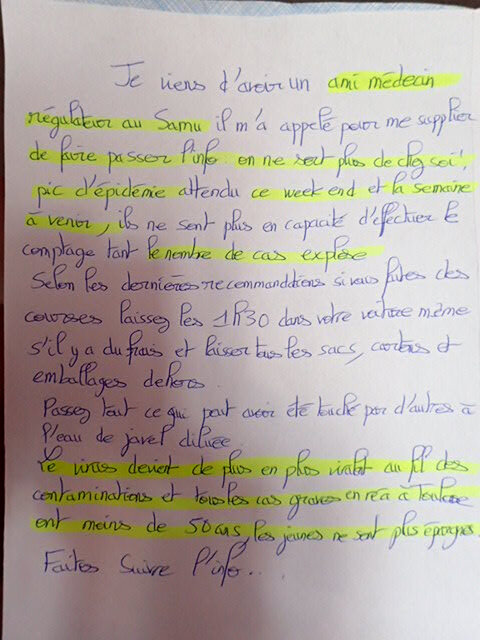 Je viens d'avoir un ami médecin
régulateur au Samu il m'a appelé pour me supplier
de faire passer l'info : on ne sort plus de chez soi !
pic d'épidémie attendu ce week end et la semaine
à venir, ils ne sont plus en capacité d'effectuer le
comptage tant le nombre de cas explose
Selon les dernières recommandations si vous faites des
courses laissez les 1h30 dans votre voiture même
s'il y a du frais et laisser tous les sacs, cartons et
emballages dehors.
Passez tout ce qui peut avoir été touché par d'autres à
l'eau de javel diluée.
Le virus devient de plus en plus virulent au fil des
contaminations et tous les cas graves en réa à Toulouse
ont moins de 50 ans, les jeunes ne sont plus épargnés.
Faites suivre l'info...